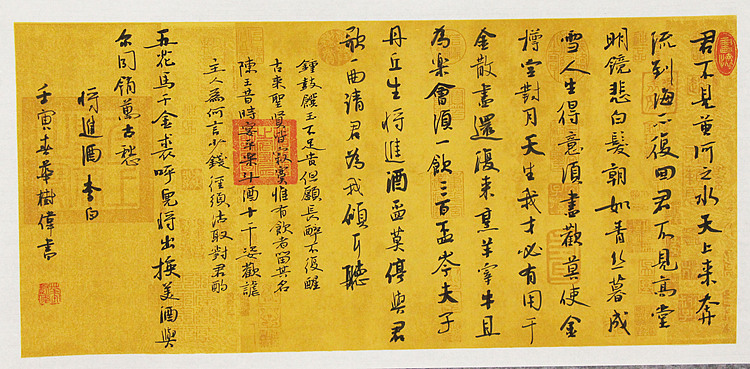 君不見黄河之水天上来奔
流到海不復回君不見高堂
明鏡悲白髮朝如青丝暮成
雪人生得意須盡歡莫使金
樽空對月天生我才必有用千
金散盡還復来烹羊宰牛且
為樂會須一飲三百盃岑夫子
丹丘生将進酒盃莫停與君
歌一曲請君為我傾耳聽
鍾鼓饌玉不足貴但願長醉不復醒
古来聖賢皆寂寞惟有飲者留其名
陳王昔時宴平樂斗酒十千恣歡謔
主人為何言少錢徑須沽取對君酌
五花馬千金裘呼兒将出换美酒與
尔同銷萬古愁
将進酒 李白
壬寅春華樹偉書